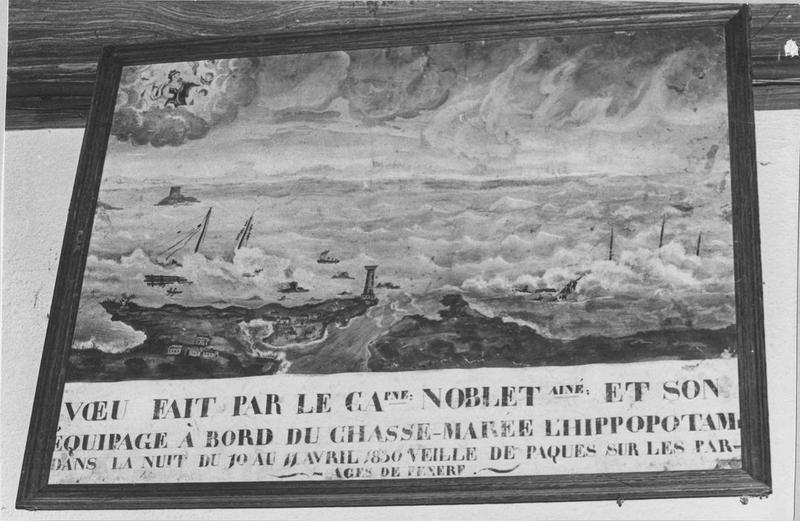 VŒU FAIT PAR LE CAPNE: NOBLET AINÉ; ET SON
ÉQUIPAGE À BORD DU CHASSE-MARÉE L'HIPPOPOTAM
DANS LA NUIT DU 10 AU 11 AVRIL 1830 VEILLE DE PAQUES SUR LES PAR-
AGES DE PENERF